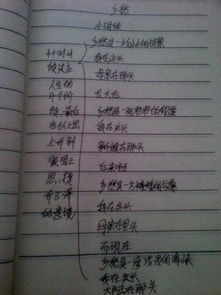 乡愁
小时候
乡愁是一枚小小的邮票
我在这头
母亲在那头
长大后
乡愁是一张窄窄的船票
我在这头
新娘在那头
后来啊
乡愁是一方矮矮的坟墓
我在外头
母亲在里头
而现在
乡愁是一湾浅浅的海峡
我在这头
大陆在那头
4个时间
人生的
4个阶
上升到
家国之
思,
的意境